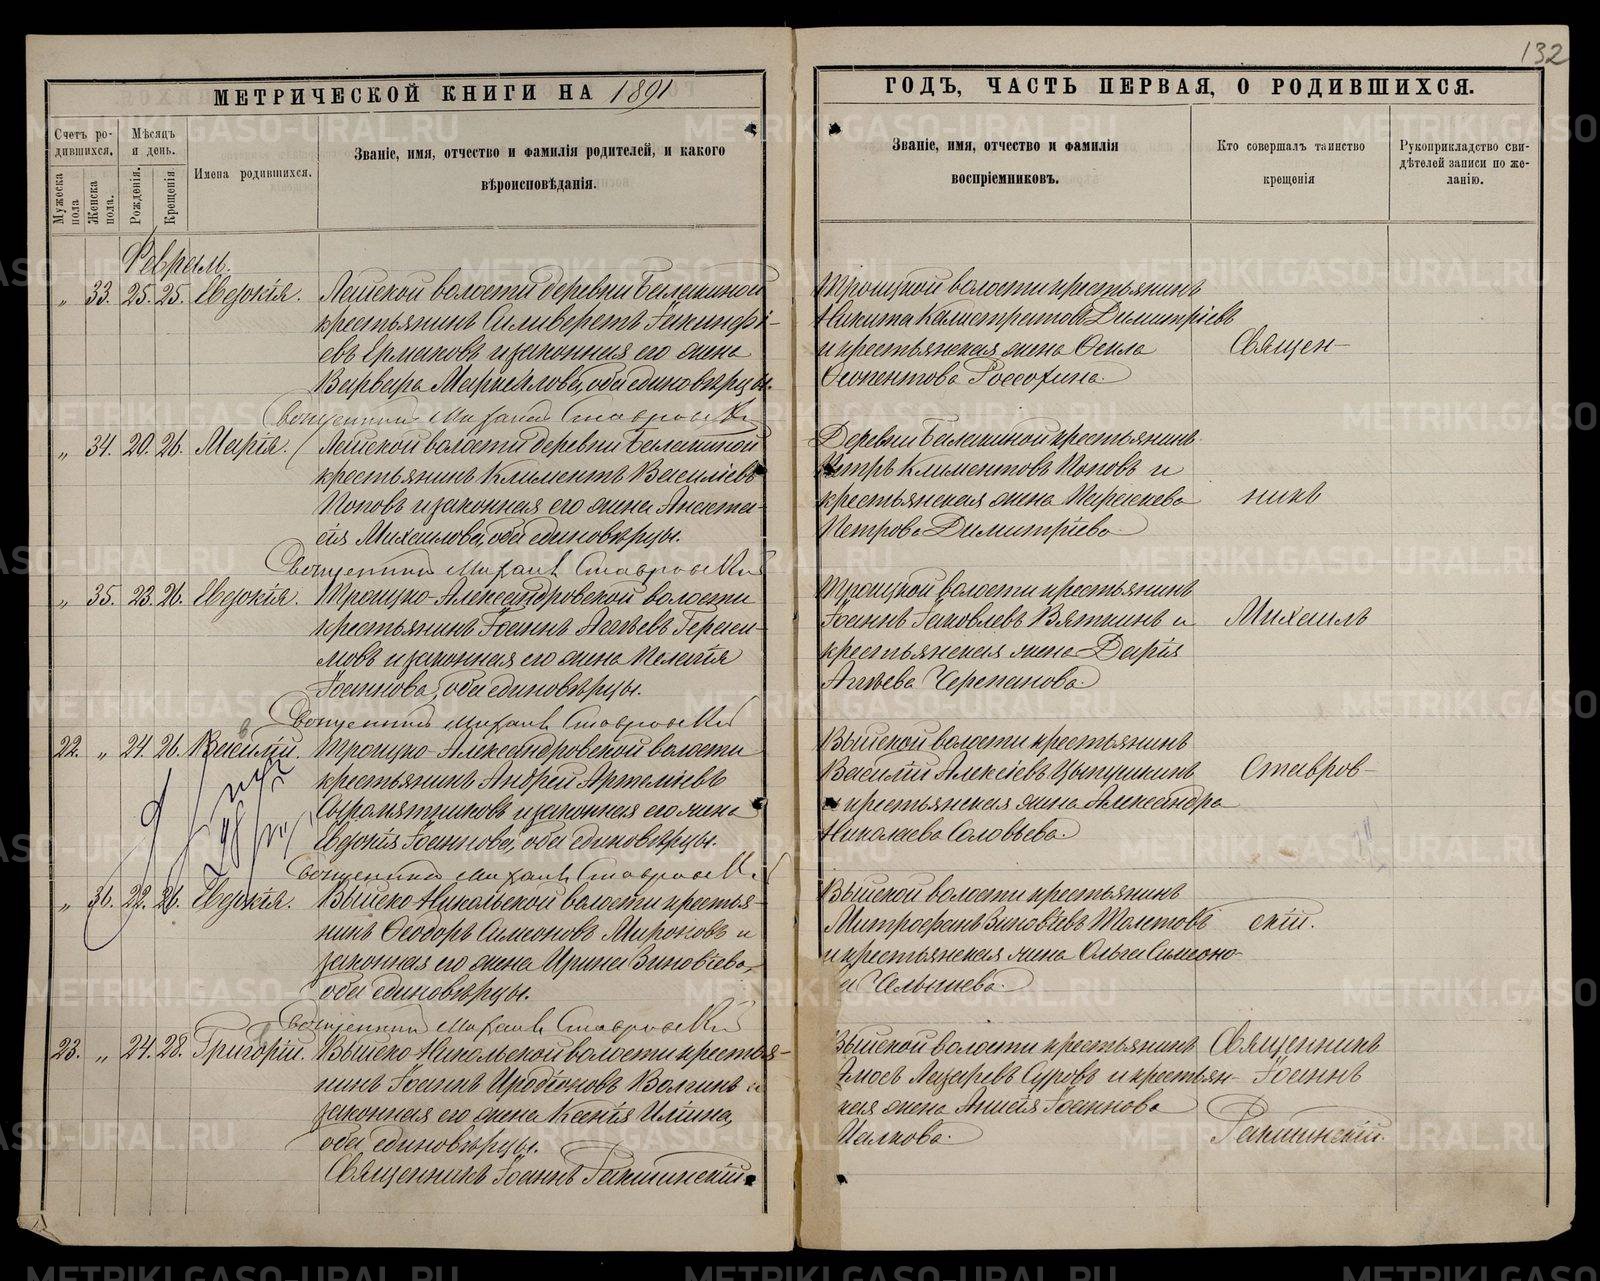 132
МЕТРИЧЕСКОЙ КНИГИ НА 1891
ГОДЪ, ЧАСТЬ ПЕРВАЯ, О РОДИВШИХСЯ.
Счетъ ро-
дившихся.
Мужеска
пола
Женска
пола.
Мѣсяцъ
и день.
Рожденія.
Крещенія.
Имена родившихся.
Званіе, имя, отчество и фамилія родителей, и какого
вѣроисповѣданія.
Званіе, имя, отчество и фамилія
воспріемниковъ.
Кто совершалъ таинство
крещенія
Рукоприкладство сви-
дѣтелей записи по же-
ланію.
Февраль.
„ 33. 25. 25. Евдокія.
волости деревни
крестьянинъ Силиверстъ
евъ Ермаковъ и законная его жена
Варвара оба единовѣрцы.
Священникъ Михаилъ Ставровскій
Троицкой волости крестьянинъ
Никита Калистратовъ Димитріевъ
и крестьянская жена
Священ-
„ 34. 20. 26. Марія.
волости деревни
крестьянинъ Климентъ Васильевъ
Поповъ и законная его жена Анаста-
сія Михаилова, оба единовѣрцы.
Священникъ Михаилъ Ставровскій
Деревни крестьянинъ
Петръ Климентовъ Поповъ и
крестьянская жена Параскева
Петрова Димитріева.
никъ
„ 35. 23. 26. Евдокія.
Троицко-Александровской волости
крестьянинъ Іоаннъ Гераси-
мовъ и законная его жена Пелагія
Іоаннова, оба единовѣрцы.
Священникъ Михаилъ Ставровскій
Троицкой волости крестьянинъ
Іоаннъ Іаковлевъ Вяткинъ и
крестьянская жена Дарія
Черепанова.
Михаилъ
22. „ 24. 26. Василій.
Троицко-Александровской волости
крестьянинъ Андрей
Сыромятниковъ и законная его жена
Евдокія Іоаннова, оба единовѣрцы.
Священникъ Михаилъ Ставровскій
Выйской волости крестьянинъ
Василій Алексіевъ
и крестьянская жена Александра
Николаева Соловьева.
Ставров-
„ 36. 22. 26. Евдокія.
Выйско-Никольской волости крестья-
нинъ Ѳеодоръ Симеоновъ Мироновъ и
законная его жена Ирина Зиновіева,
оба единовѣрцы.
Священникъ Михаилъ Ставровскій
Выйской волости крестьянинъ
Митрофанъ Зиновіевъ Толстовъ
и крестьянская жена Ольга Симеоно-
скій.
23. „ 24. 28. Григорій.
Выйско-Никольской волости крестья-
нинъ Іоаннъ Иродіоновъ Волгинъ и
законная его жена Ксенія Иліина,
оба единовѣрцы.
Священникъ Іоаннъ
Выйской волости крестьянинъ
Амосъ Лазаревъ Суровъ и крестьян-
кая жена Анисія Іоаннова
Священникъ
Іоаннъ
METRIKI.GASO-URAL.RU